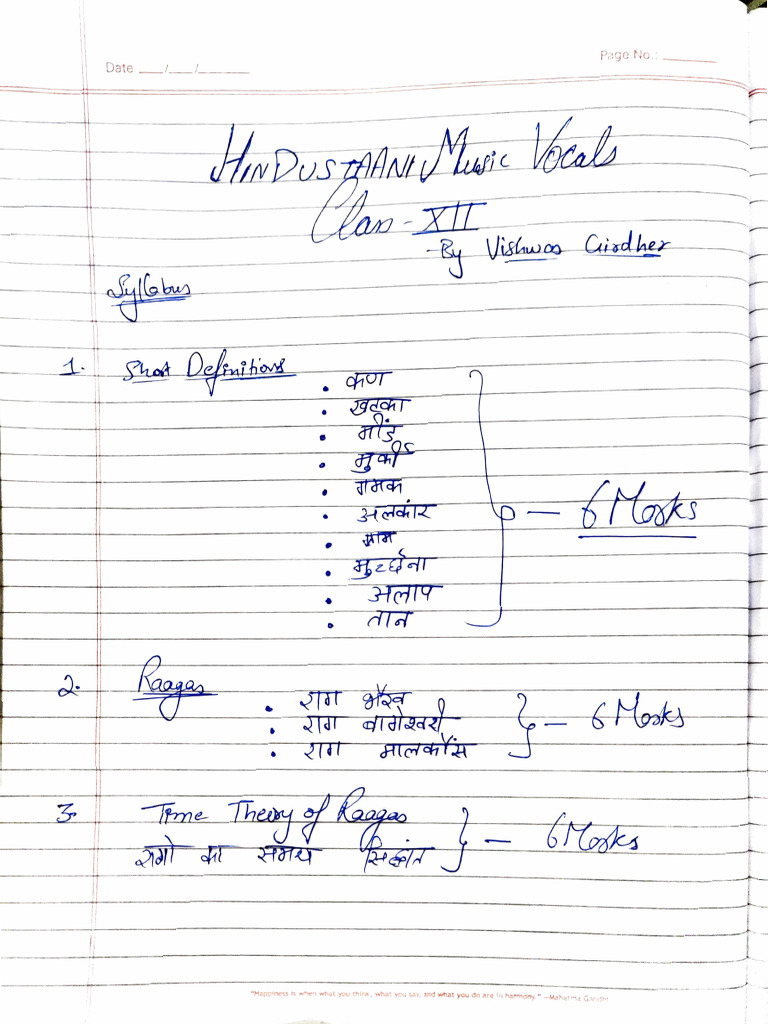 Date ___/___/______
Page No.: ______
HINDUSTAANI Music Vocals
Class - XII
- By Vishwas Girdher
Syllabus
1. Short Definitions
• कण
• खटका
• मींड
• मुर्की
• गमक
• अलकांर
• ग्राम
• मुर्च्छना
• अलाप
• तान
— 6 Marks
2. Raagas
• राग भैरव
• राग बागेश्वरी
• राग मालकौंस
— 6 Marks
3. Time Theory of Raagas
रागो का समय सिद्धांत
— 6 Marks
"Happiness is when what you think, what you say, and what you do are in harmony." —Mahatma Gandhi